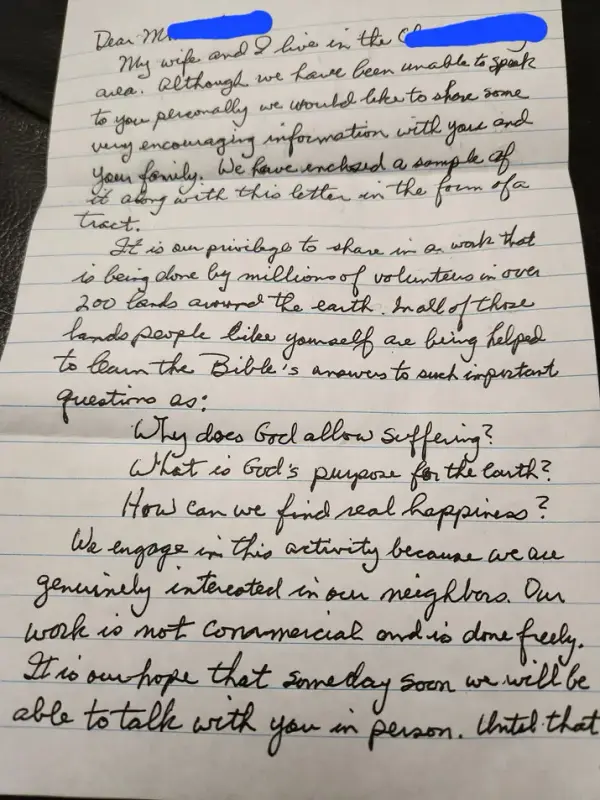 Dear M
My wife and I live in the C
area. Although we have been unable to speak
to you personally we would like to share some
very encouraging information with you and
your family. We have enclosed a sample of
it along with this letter in the form of a
tract.
It is our privilege to share in a work that
is being done by millions of volunteers in over
200 lands around the earth. In all of those
lands people like yourself are being helped
to learn the Bible's answers to such important
questions as:
Why does God allow suffering?
What is God's purpose for the earth?
How can we find real happiness?
We engage in this activity because we are
genuinely interested in our neighbors. Our
work is not commercial and is done freely.
It is our hope that someday soon we will be
able to talk with you in person. Until that